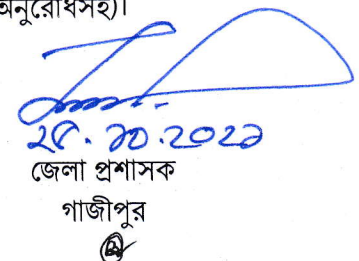 অনুরোধসহ)।
২৫.১০.২০২১
জেলা প্রশাসক
গাজীপুর